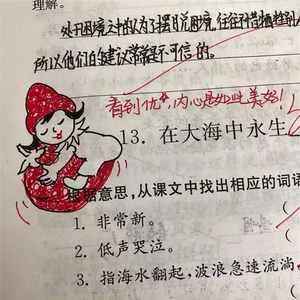 理解。
处于困境之中的人为了摆脱困境,往往不惜牺牲别
所以他们的建议常常是不可信的。
看到优,内心是如此美好!
13. 在大海中永生
根据意思,从课文中找出相应的词语
1. 非常新。
2. 低声哭泣。
3. 指海水翻起,波浪急速流淌,